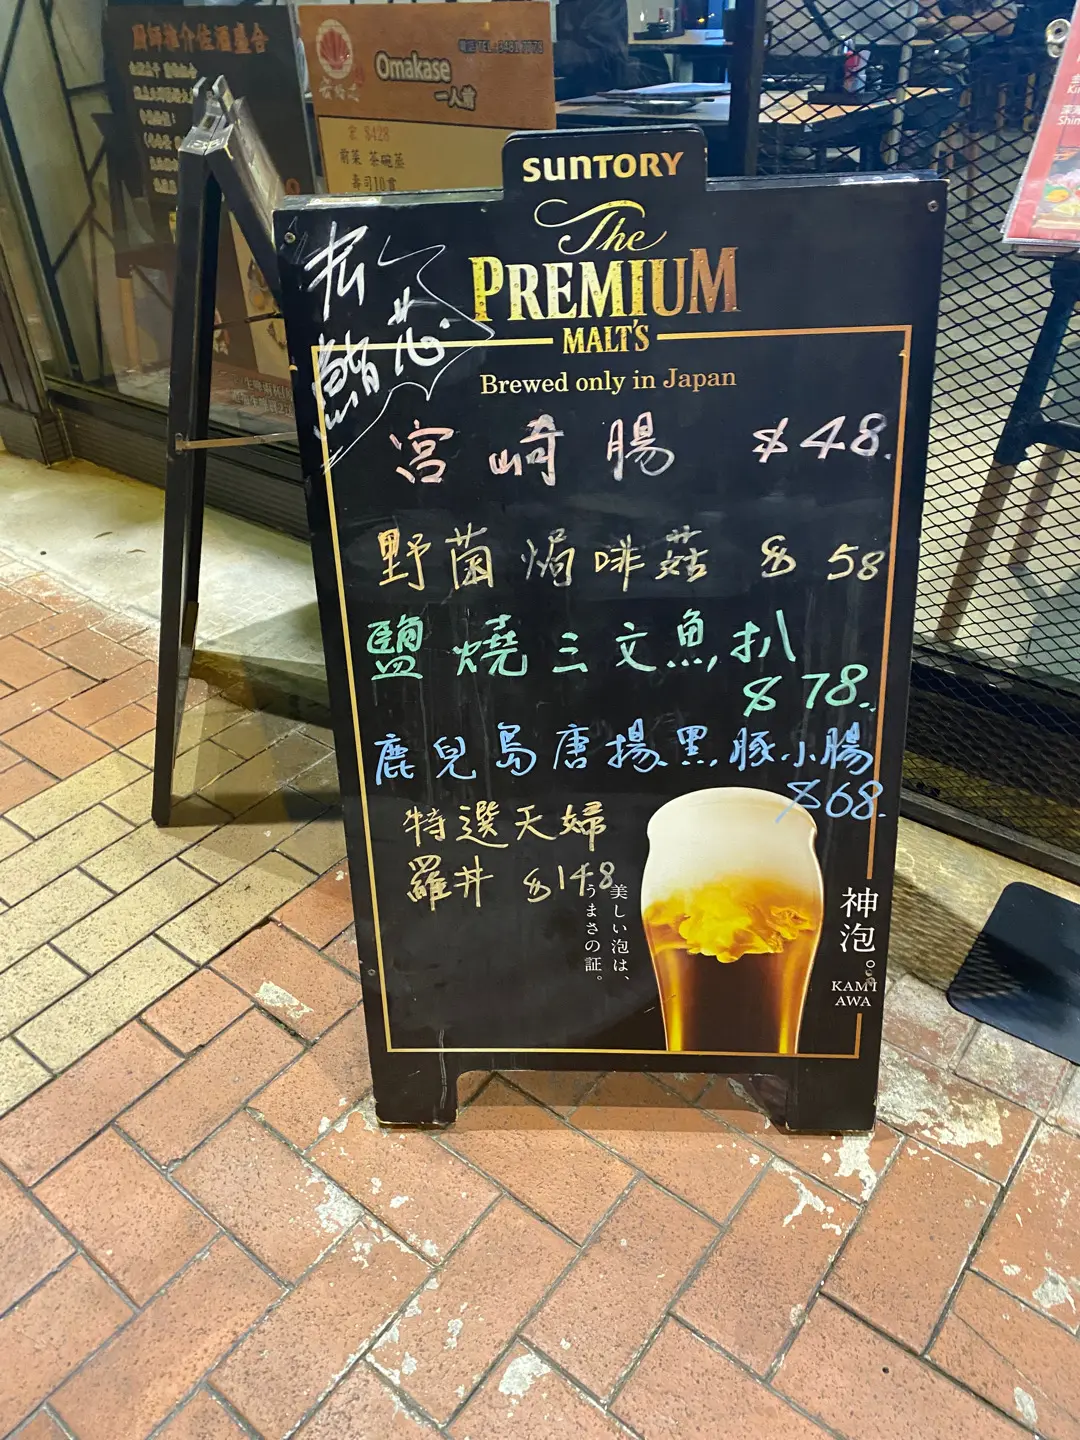 廚師推介佐酒盛合
電話 TEL: 3481 7078
Omakase
一人前
$428
前菜 茶碗蒸
壽司10貫
SUNTORY
The
PREMIUM
MALT'S
Brewed only in Japan
宮崎腸 $48.
野菌焗啡菇 $58
鹽燒三文魚扒
$78.
鹿兒島唐揚黑豚小腸
$68.
特選天婦
羅丼 $148
美しい泡は、
うまさの証。
神泡。
KAMI
AWA